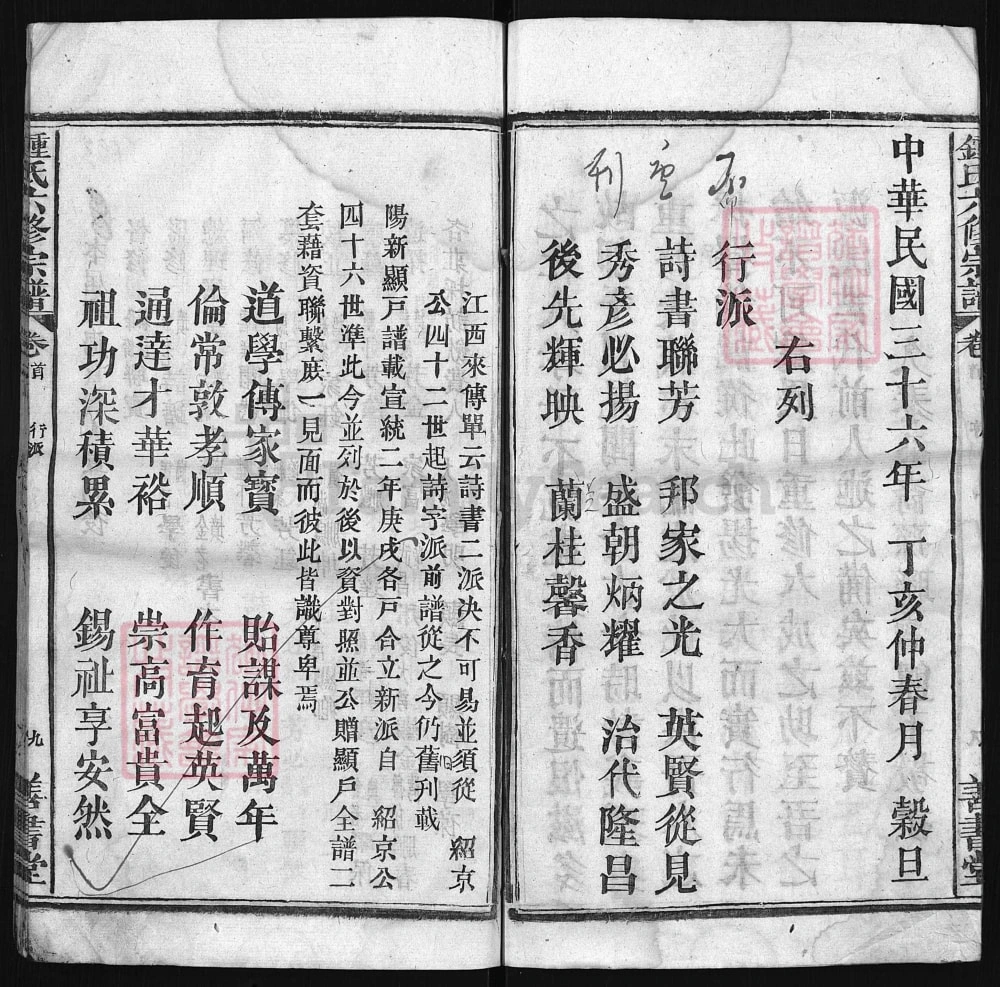 鍾氏六修宗譜 卷
善書堂
中華民國三十六年 丁亥仲春月 穀旦
右列
行派
詩書聯芳 邦家之光 英賢從見
秀彥必揚 盛朝炳耀 治代隆昌
後先輝映 蘭桂馨香
刊
江西來傳單云詩書二派決不可易並須從 紹京
公四十二世起詩字派前譜從之今仍舊刊載
陽新顯戶譜載宣統二年庚戌各戶合立新派自 紹京公
四十六世準此今並列於後以資對照並公贈顯戶全譜二
套藉資聯繫庶一見面而彼此皆識尊卑焉
道學傳家寶 貽謀及萬年
倫常敦孝順 作育起英賢
通達才華裕 崇高富貴全
祖功深積累 錫祉享安然
鍾氏六修宗譜 卷首 行派 九 善書堂